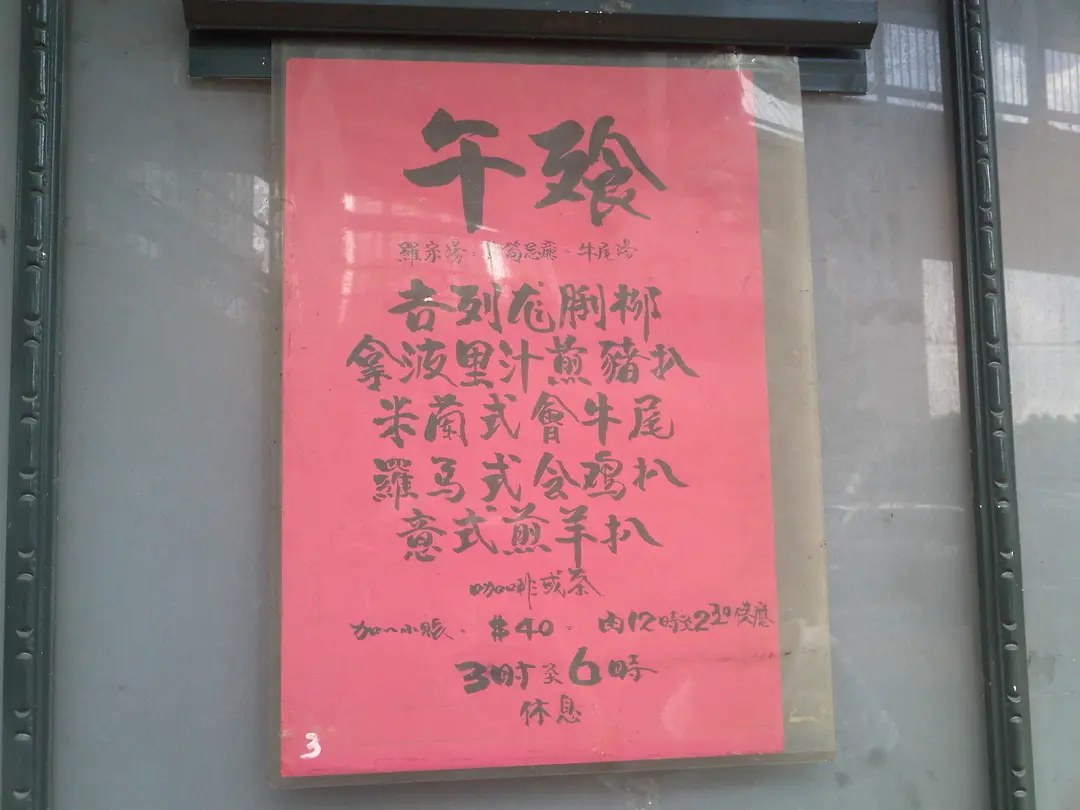 午飡
羅宋湯 · 筍忌廉 · 牛尾湯
吉列龙脷柳
拿波里汁煎豬扒
米蘭式會牛尾
羅馬式会鸡扒
意式煎羊扒
咖啡或茶
加一小賬 · $40 · 由12時至230供應
3时至6時
休息
3